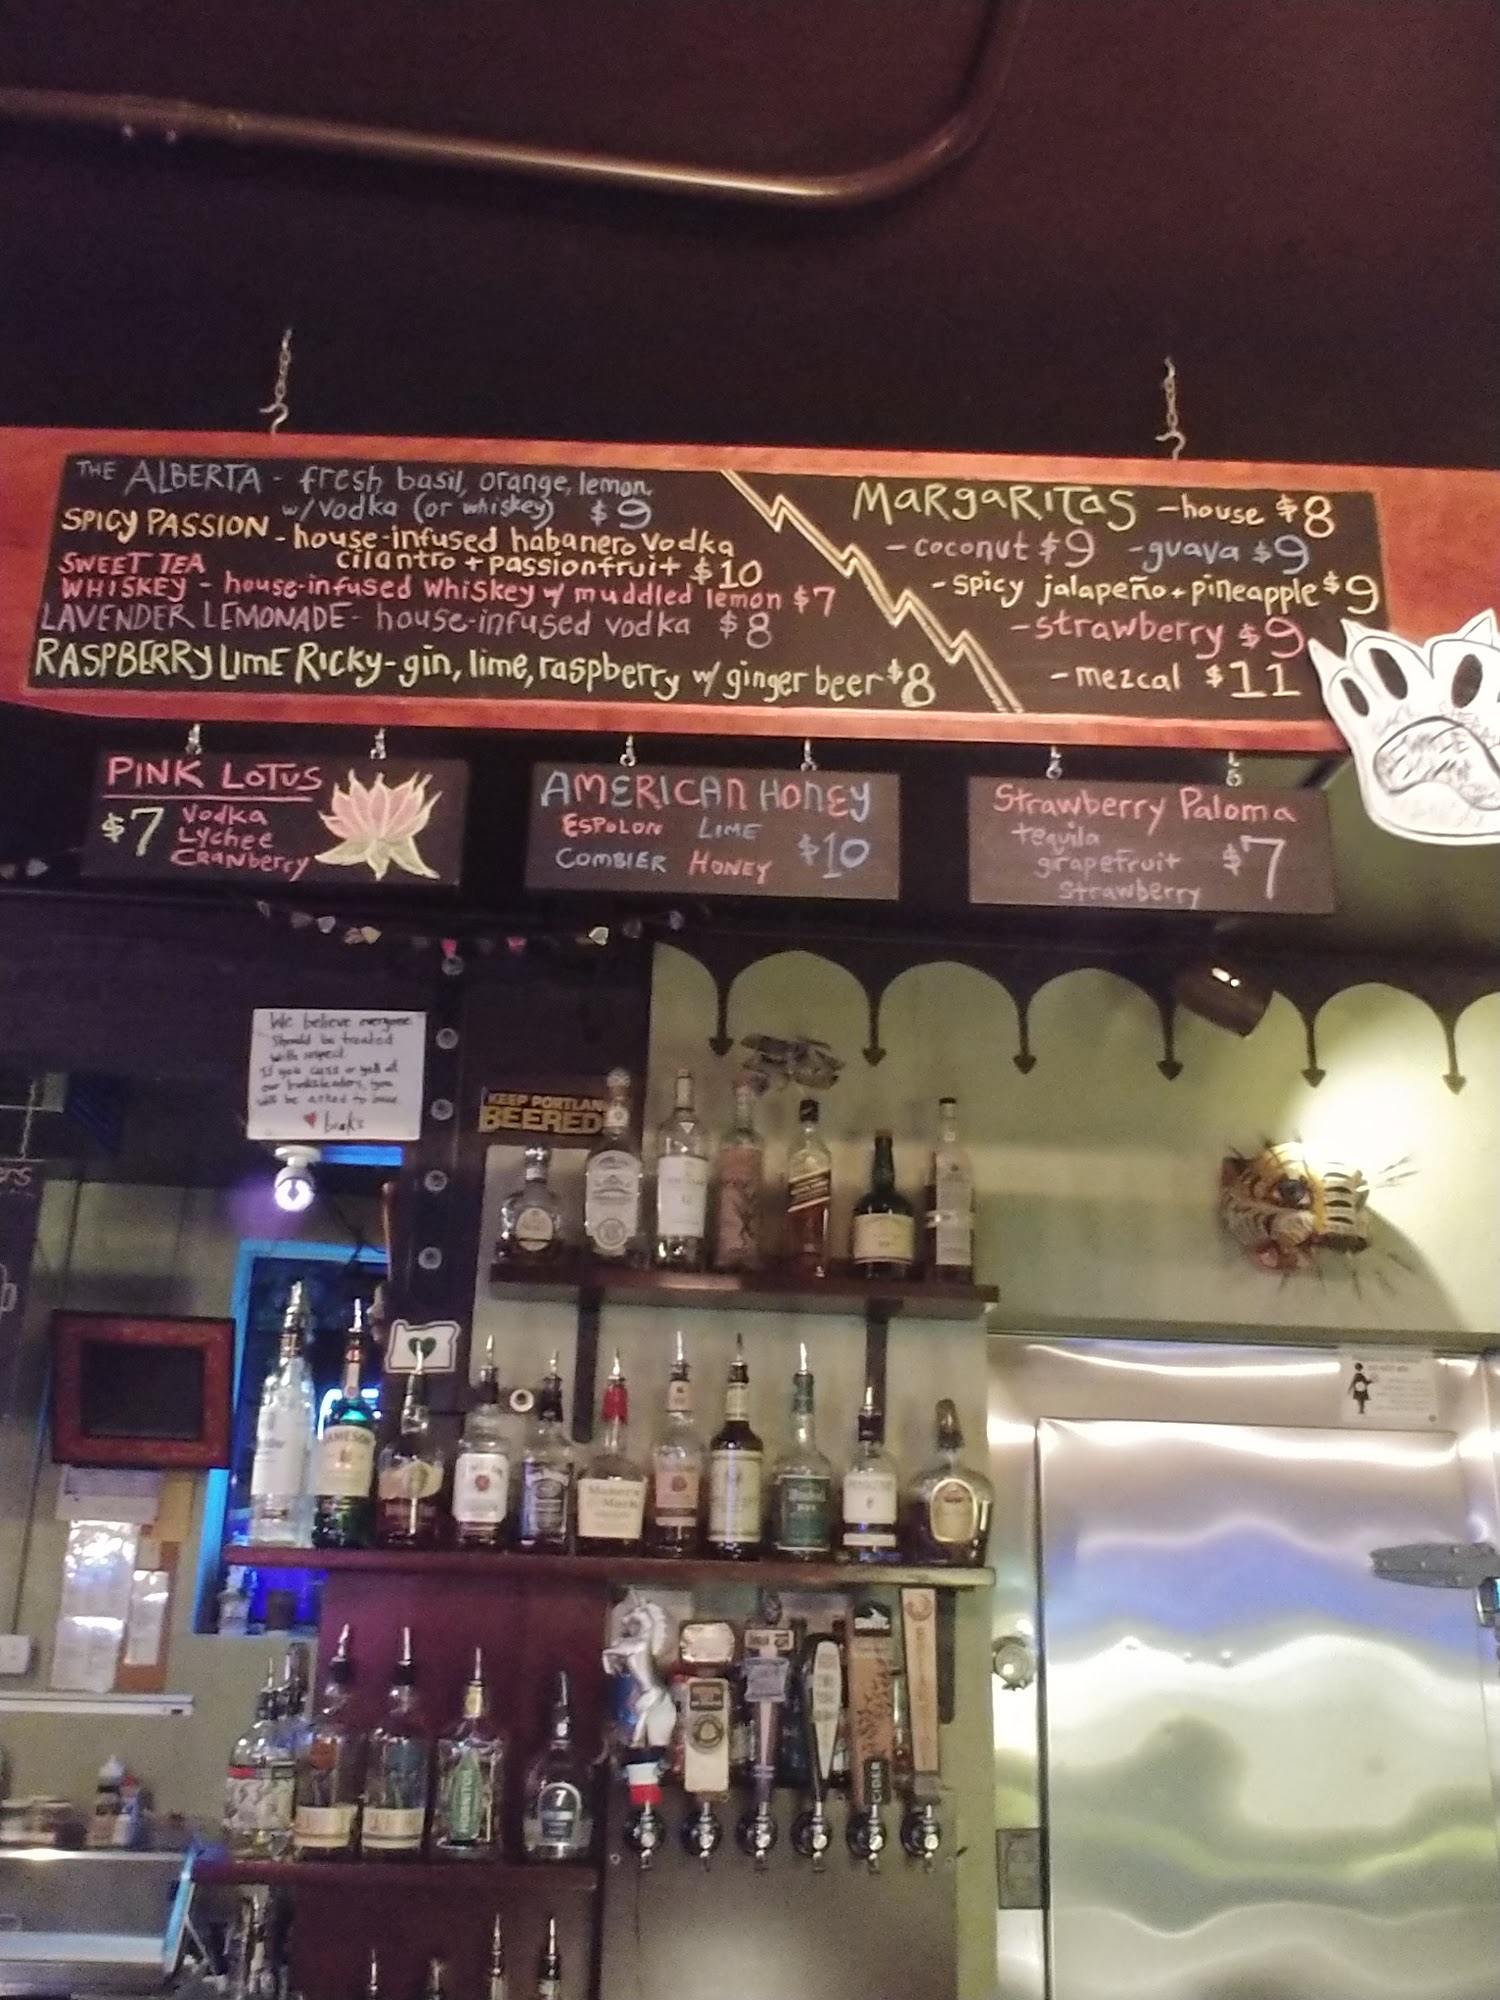 THE ALBERTA - fresh basil, orange, lemon,
w/ vodka (or whiskey) $9
SPICY PASSION - house-infused habanero vodka
cilantro + passionfruit $10
SWEET TEA
WHISKEY - house-infused whiskey w/ muddled lemon $7
LAVENDER LEMONADE - house-infused vodka $8
RASPBERRY LIME RICKY - gin, lime, raspberry w/ ginger beer $8
MARGARITAS - house $8
- coconut $9 - guava $9
- spicy jalapeño + pineapple $9
- strawberry $9
- mezcal $11
PINK LOTUS
$7 Vodka
Lychee
CRANberry
AMERICAN HONEY
ESPOLON LIME
COMBIER HONEY $10
Strawberry Paloma
tequila
grapefruit $7
strawberry
We believe everyone
should be treated
with respect.
If you cuss or yell at
our bartenders, you
will be asked to leave.
KEEP PORTLAN
BEERED
JAMESON
Maker's
Mark
CIDER
7